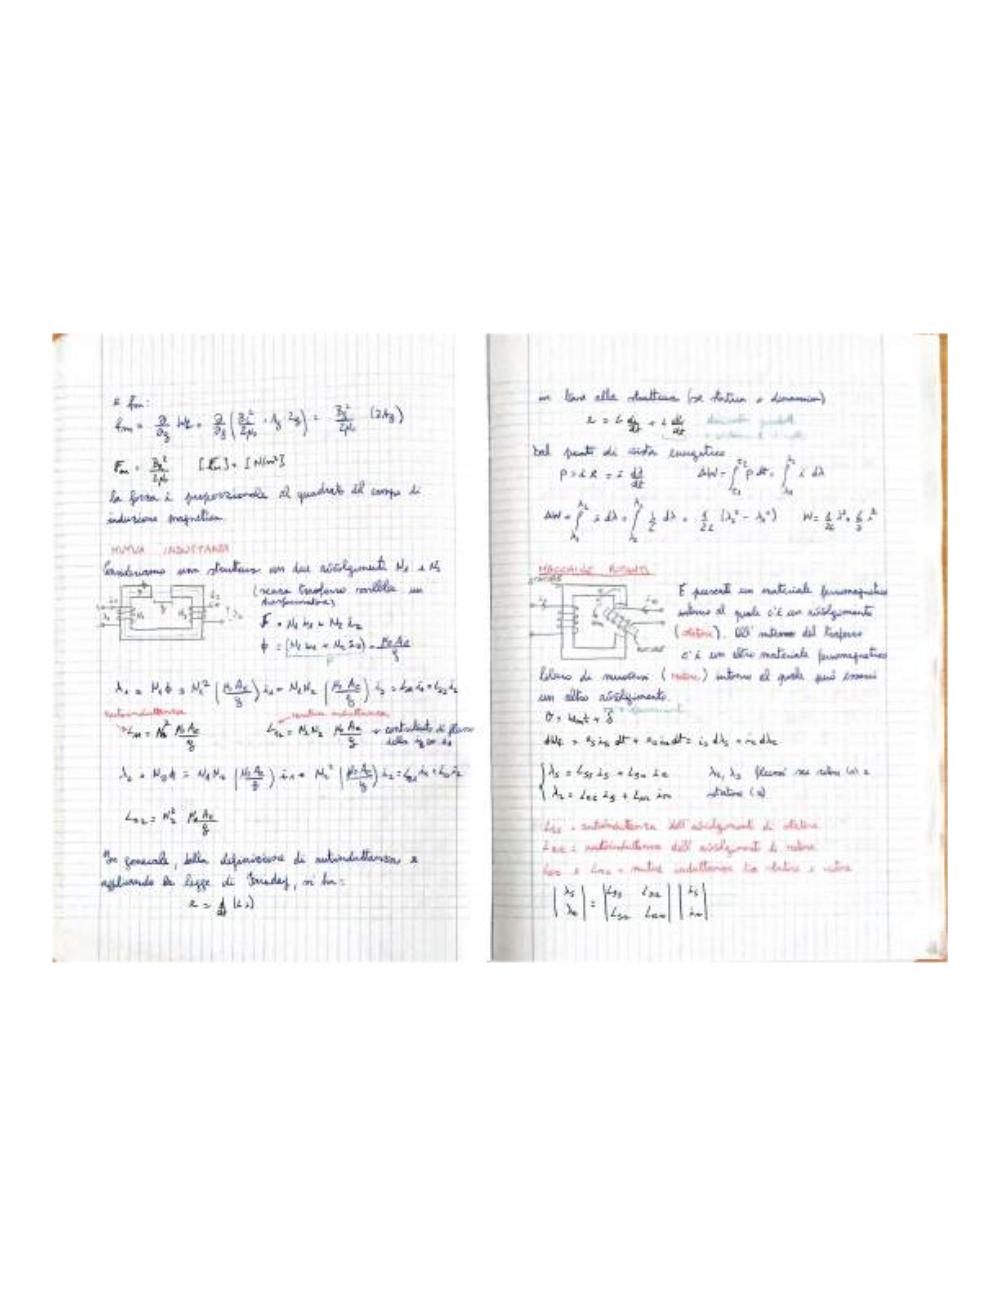 e fm:
fm = ∂/∂g Wf = ∂/∂g ( Bg²/2μ₀ · Ag 2g ) = Bg²/2μ₀ (2Ag)
Fm = Bg²/2μ₀ [Fm] = [N/m²]
la forza è proporzionale al quadrato del campo di
induzione magnetica.
MUTUA INDUTTANZA
Consideriamo una struttura con due avvolgimenti N₁ e N₂
(senza traferro sarebbe un
trasformatore)
F = N₁ i₁ + N₂ i₂
ϕ = (N₁ i₁ + N₂ i₂) μ₀ Ac/g
λ₁ = N₁ ϕ = N₁² (μ₀ Ac/g) i₁ + N₁N₂ (μ₀ Ac/g) i₂ = L₁₁ i₁ + L₁₂ i₂
autoinduttanza mutua induttanza
L₁₁ = N₁² μ₀ Ac/g L₁₂ = N₁N₂ μ₀ Ac/g contributo di flusso
della i₂ su
λ₂ = N₂ϕ = N₁N₂ (μ₀ Ac/g) i₁ + N₂² (μ₀ Ac/g) i₂ = L₂₁ i₁ + L₂₂ i₂
L₂₂ = N₂² μ₀ Ac/g
In generale, dalla definizione di autoinduttanza e
applicando la legge di Faraday, si ha:
e = d/dt (L i)
in base alla struttura (se statica o dinamica)
e = L di/dt + i dL/dt
Dal punto di vista energetico
p = i e = i dλ/dt ΔW = ∫ p dt = ∫ i dλ
ΔW = ∫ i dλ = ∫ λ/L dλ = 1/2L (λ₂² - λ₁²) W = 1/2L λ² = L/2 i²
MACCHINE ROTANTI
È presente un materiale ferromagnetico
intorno al quale c'è un avvolgimento
(statore). All'interno del traferro
c'è un altro materiale ferromagnetico
libero di muoversi (rotore) intorno al quale può esserci
un altro avvolgimento.
θ = ωm t + δ
dWf = es is dt + er ir dt = is dλs + ir dλr
λs = Lss is + Lsr ir λr, λs flussi su rotore (r) e
λr = Lrs is + Lrr ir statore (s)
Lss = autoinduttanza dell'avvolgimento di statore
Lrr = autoinduttanza dell'avvolgimento di rotore
Lsr e Lrs = mutua induttanza tra statore e rotore
|λs| = |Lss Lsr| |is|
|λr| |Lsr Lrr| |ir|